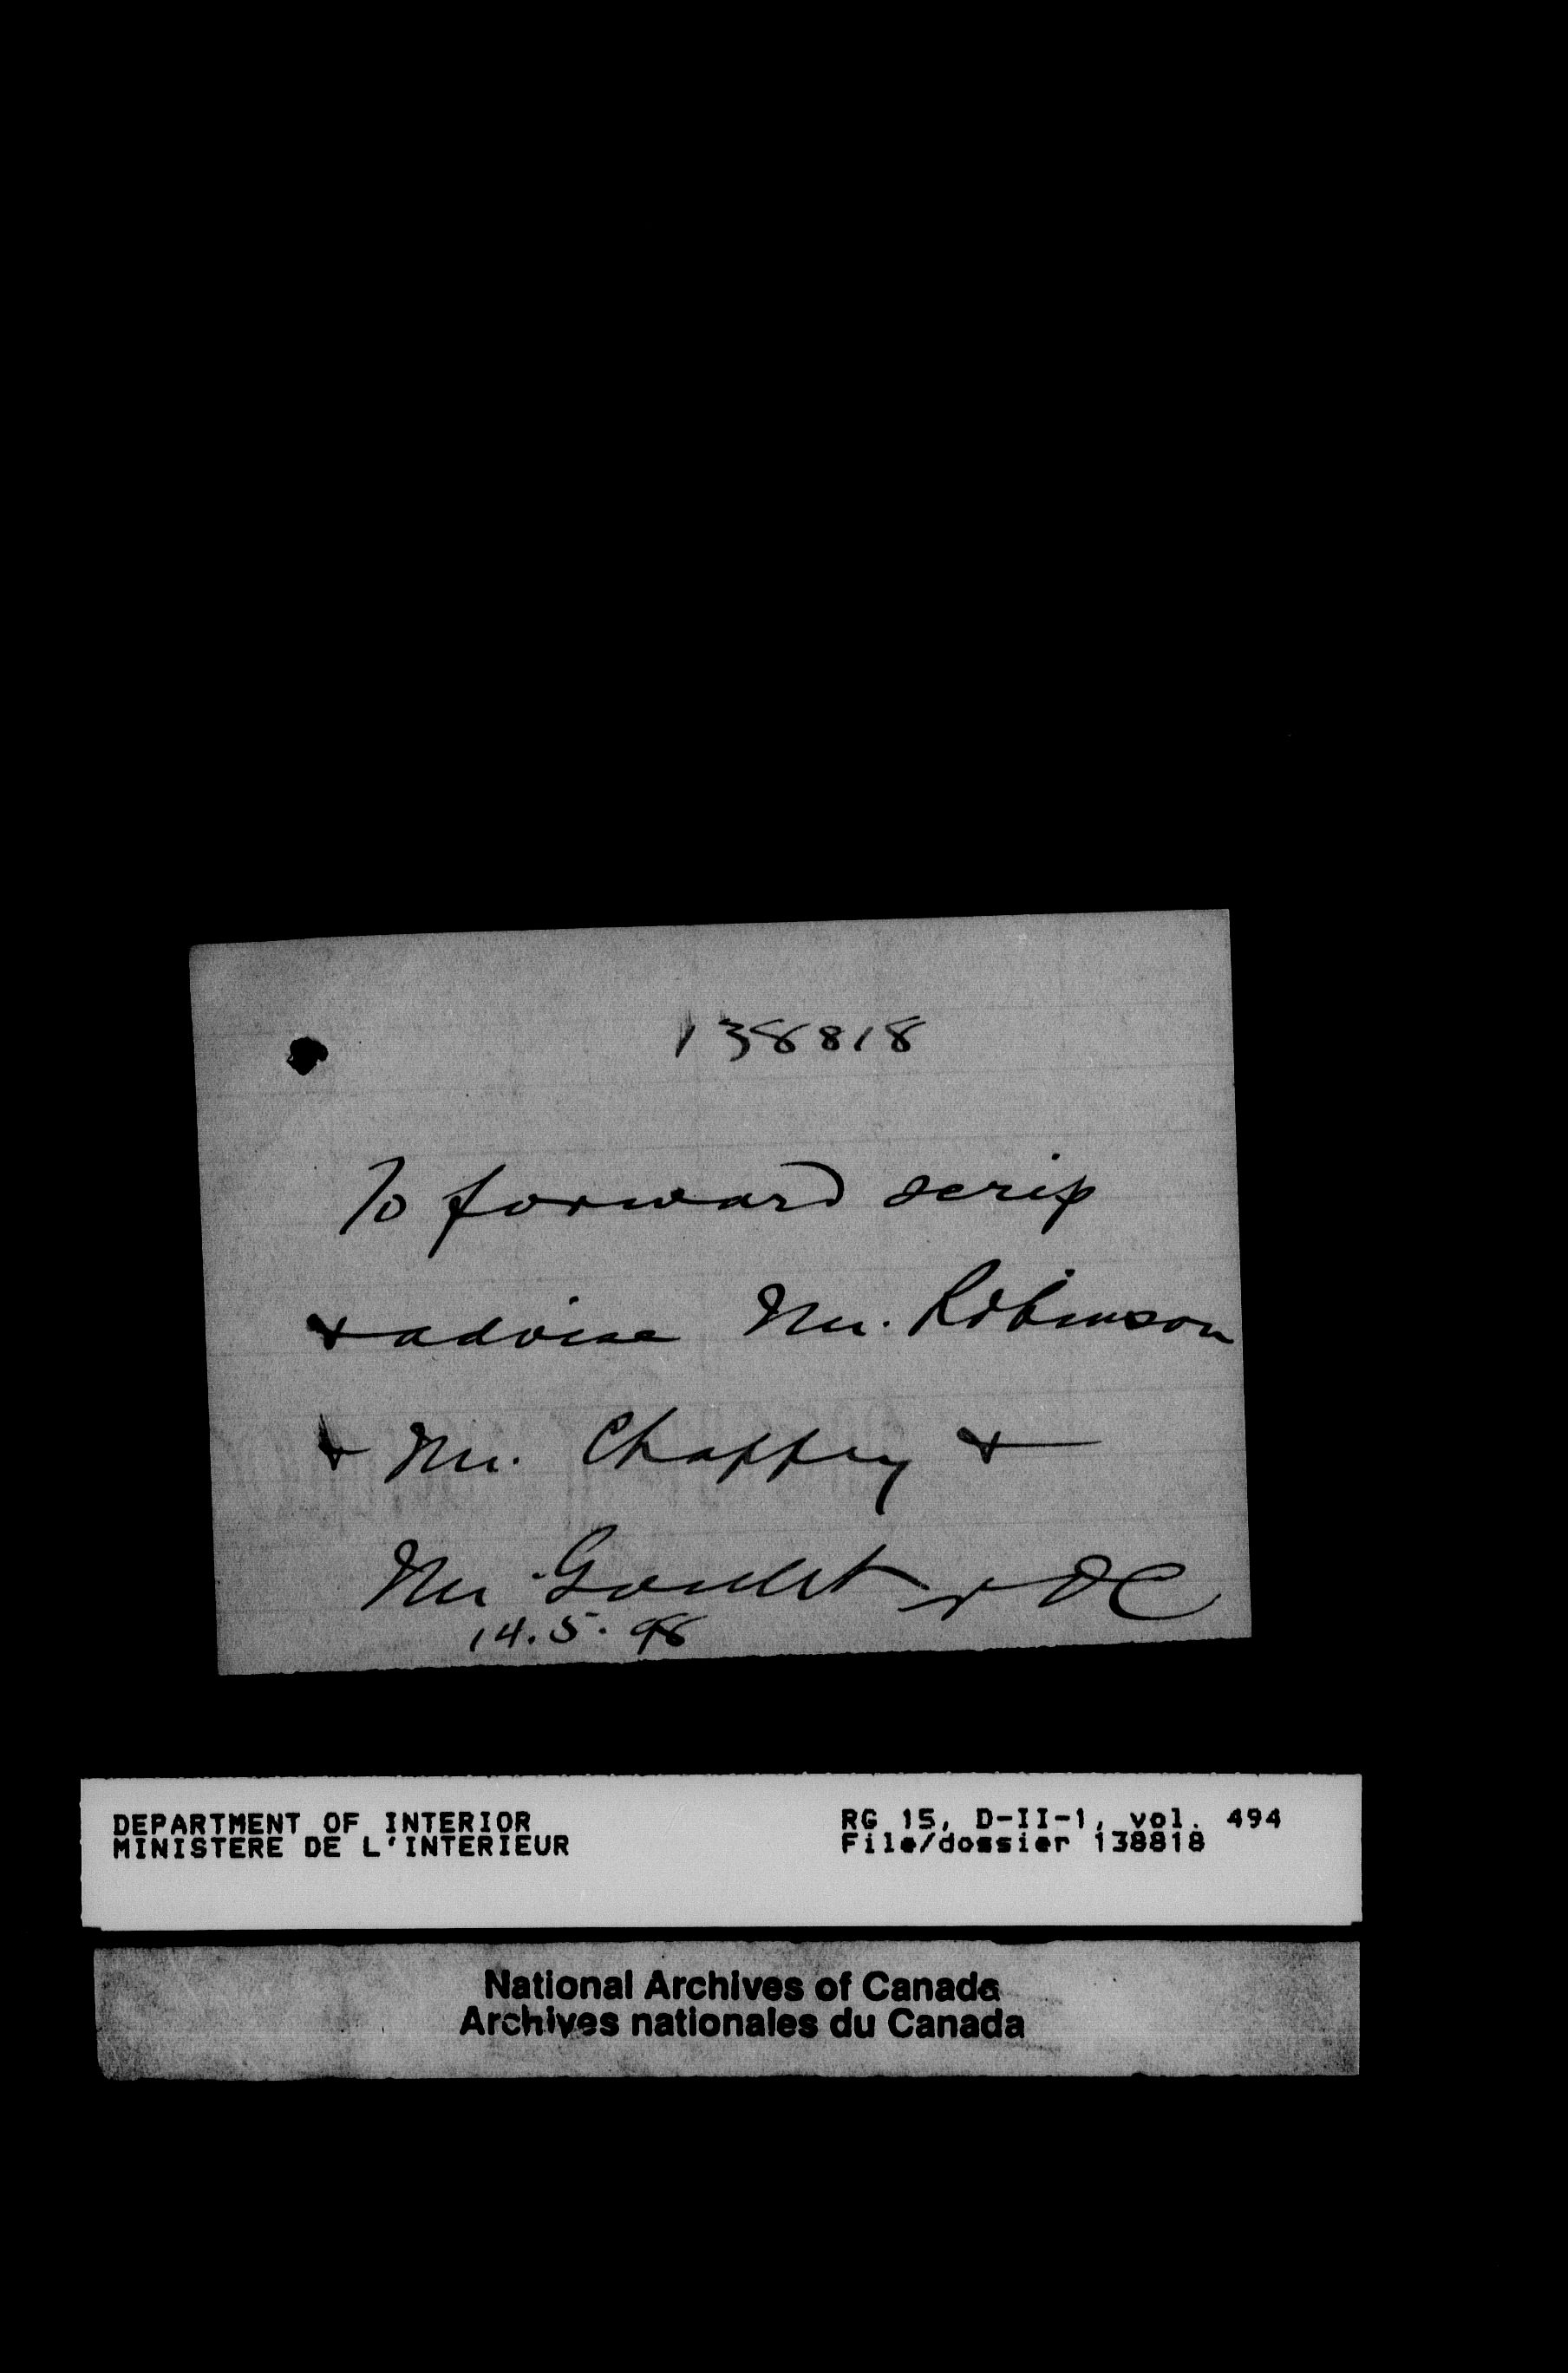 138818
To forward scrip
& advise Mr. Robinson
& Mr. Chaffey &
Mr Goulet &
14.5.98
DEPARTMENT OF INTERIOR
MINISTERE DE L'INTERIEUR
RG 15, D-II-1, vol. 494
File/dossier 138818
National Archives of Canada
Archives nationales du Canada